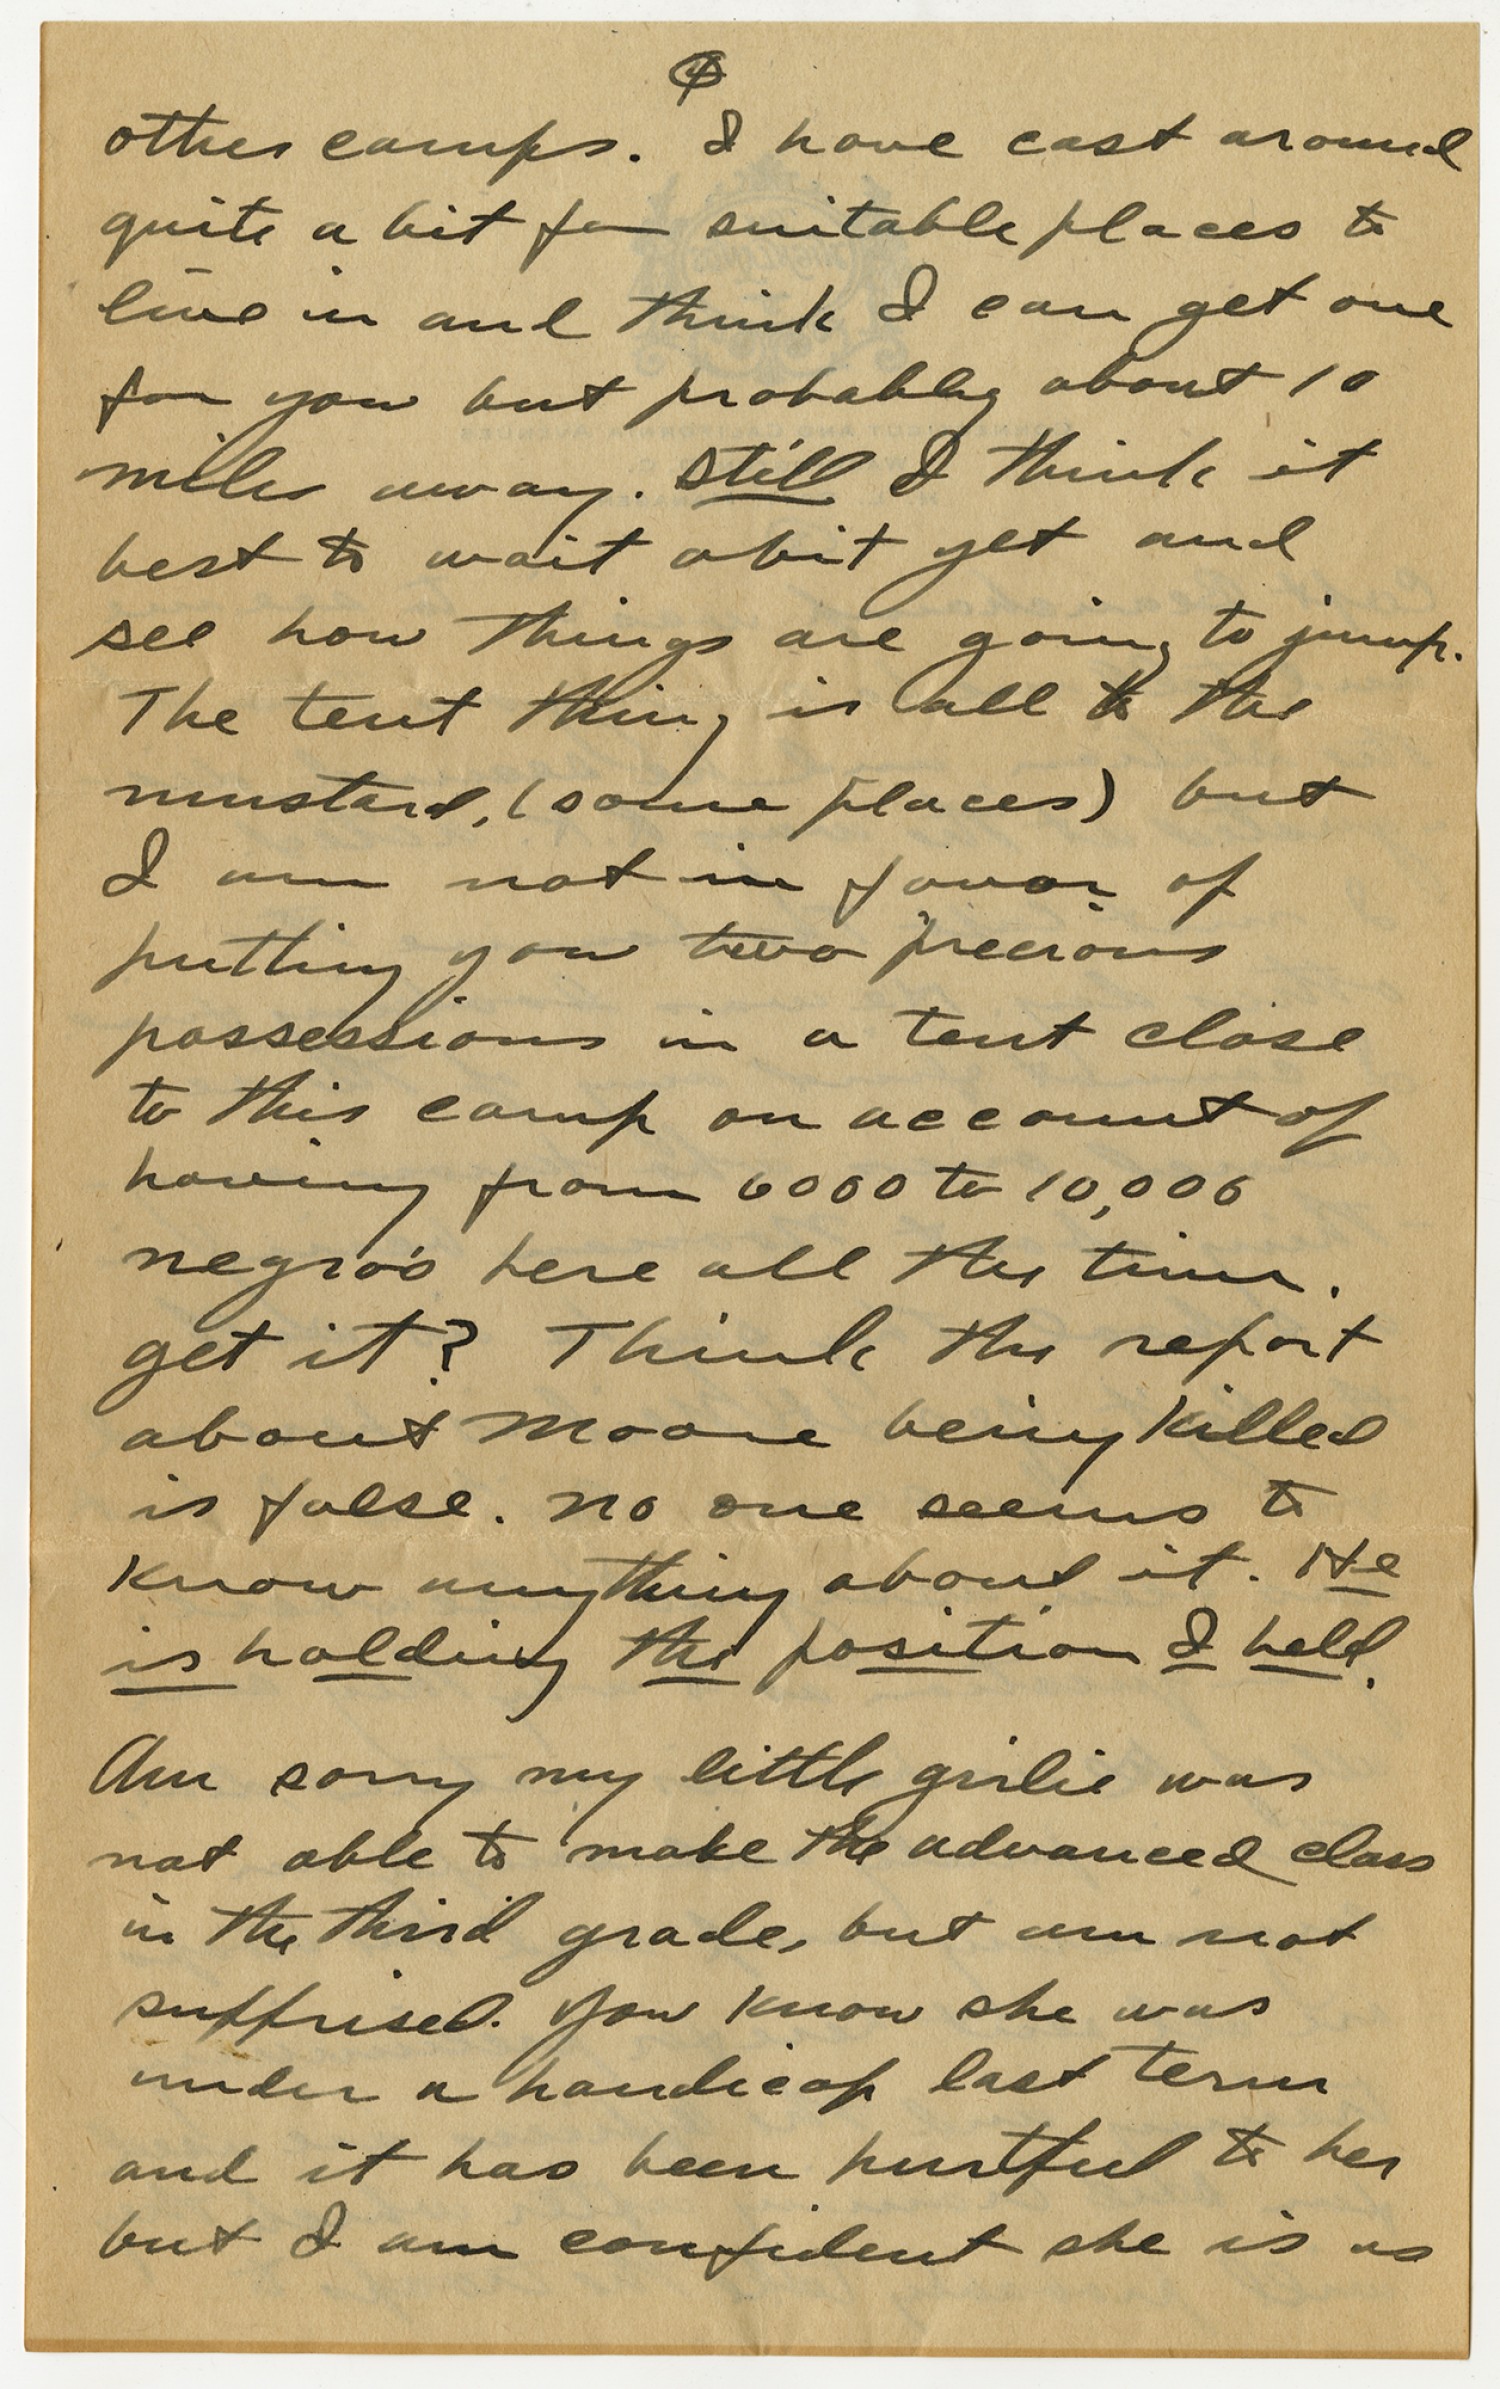 4
other camps. I have cast around
quite a bit for suitable places to
live in and think I can get one
for you but probably about 10
miles away. Still I think it
best to wait a bit yet and
see how things are going to jump.
The tent thing is all to the
mustard, (some places) but
I am not in favor of
putting you two precious
possessions in a tent close
to this camp on account of
having from 6000 to 10,000
negro's here all the time.
get it? Think the report
about Moore being killed
is false. No one seems to
know anything about it. He
is holding the position I held.
Am sorry my little girlie was
not able to make the advanced class
in the third grade, but am not
suffrised. You know she was
under a handicap last term
and it has been hurtful to her
but I am confident she is as